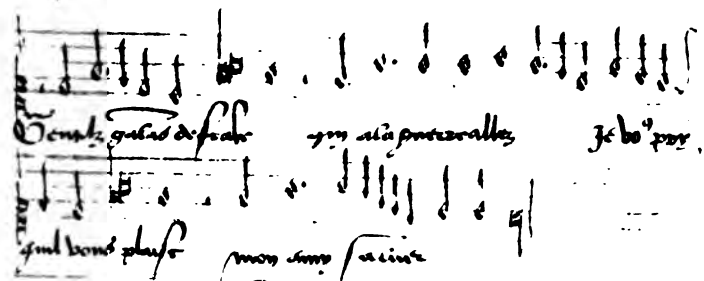 Gentilz galãs de france qui alla guerre allez Je vo⁹ pry
quil vous plaise mon amy saluer